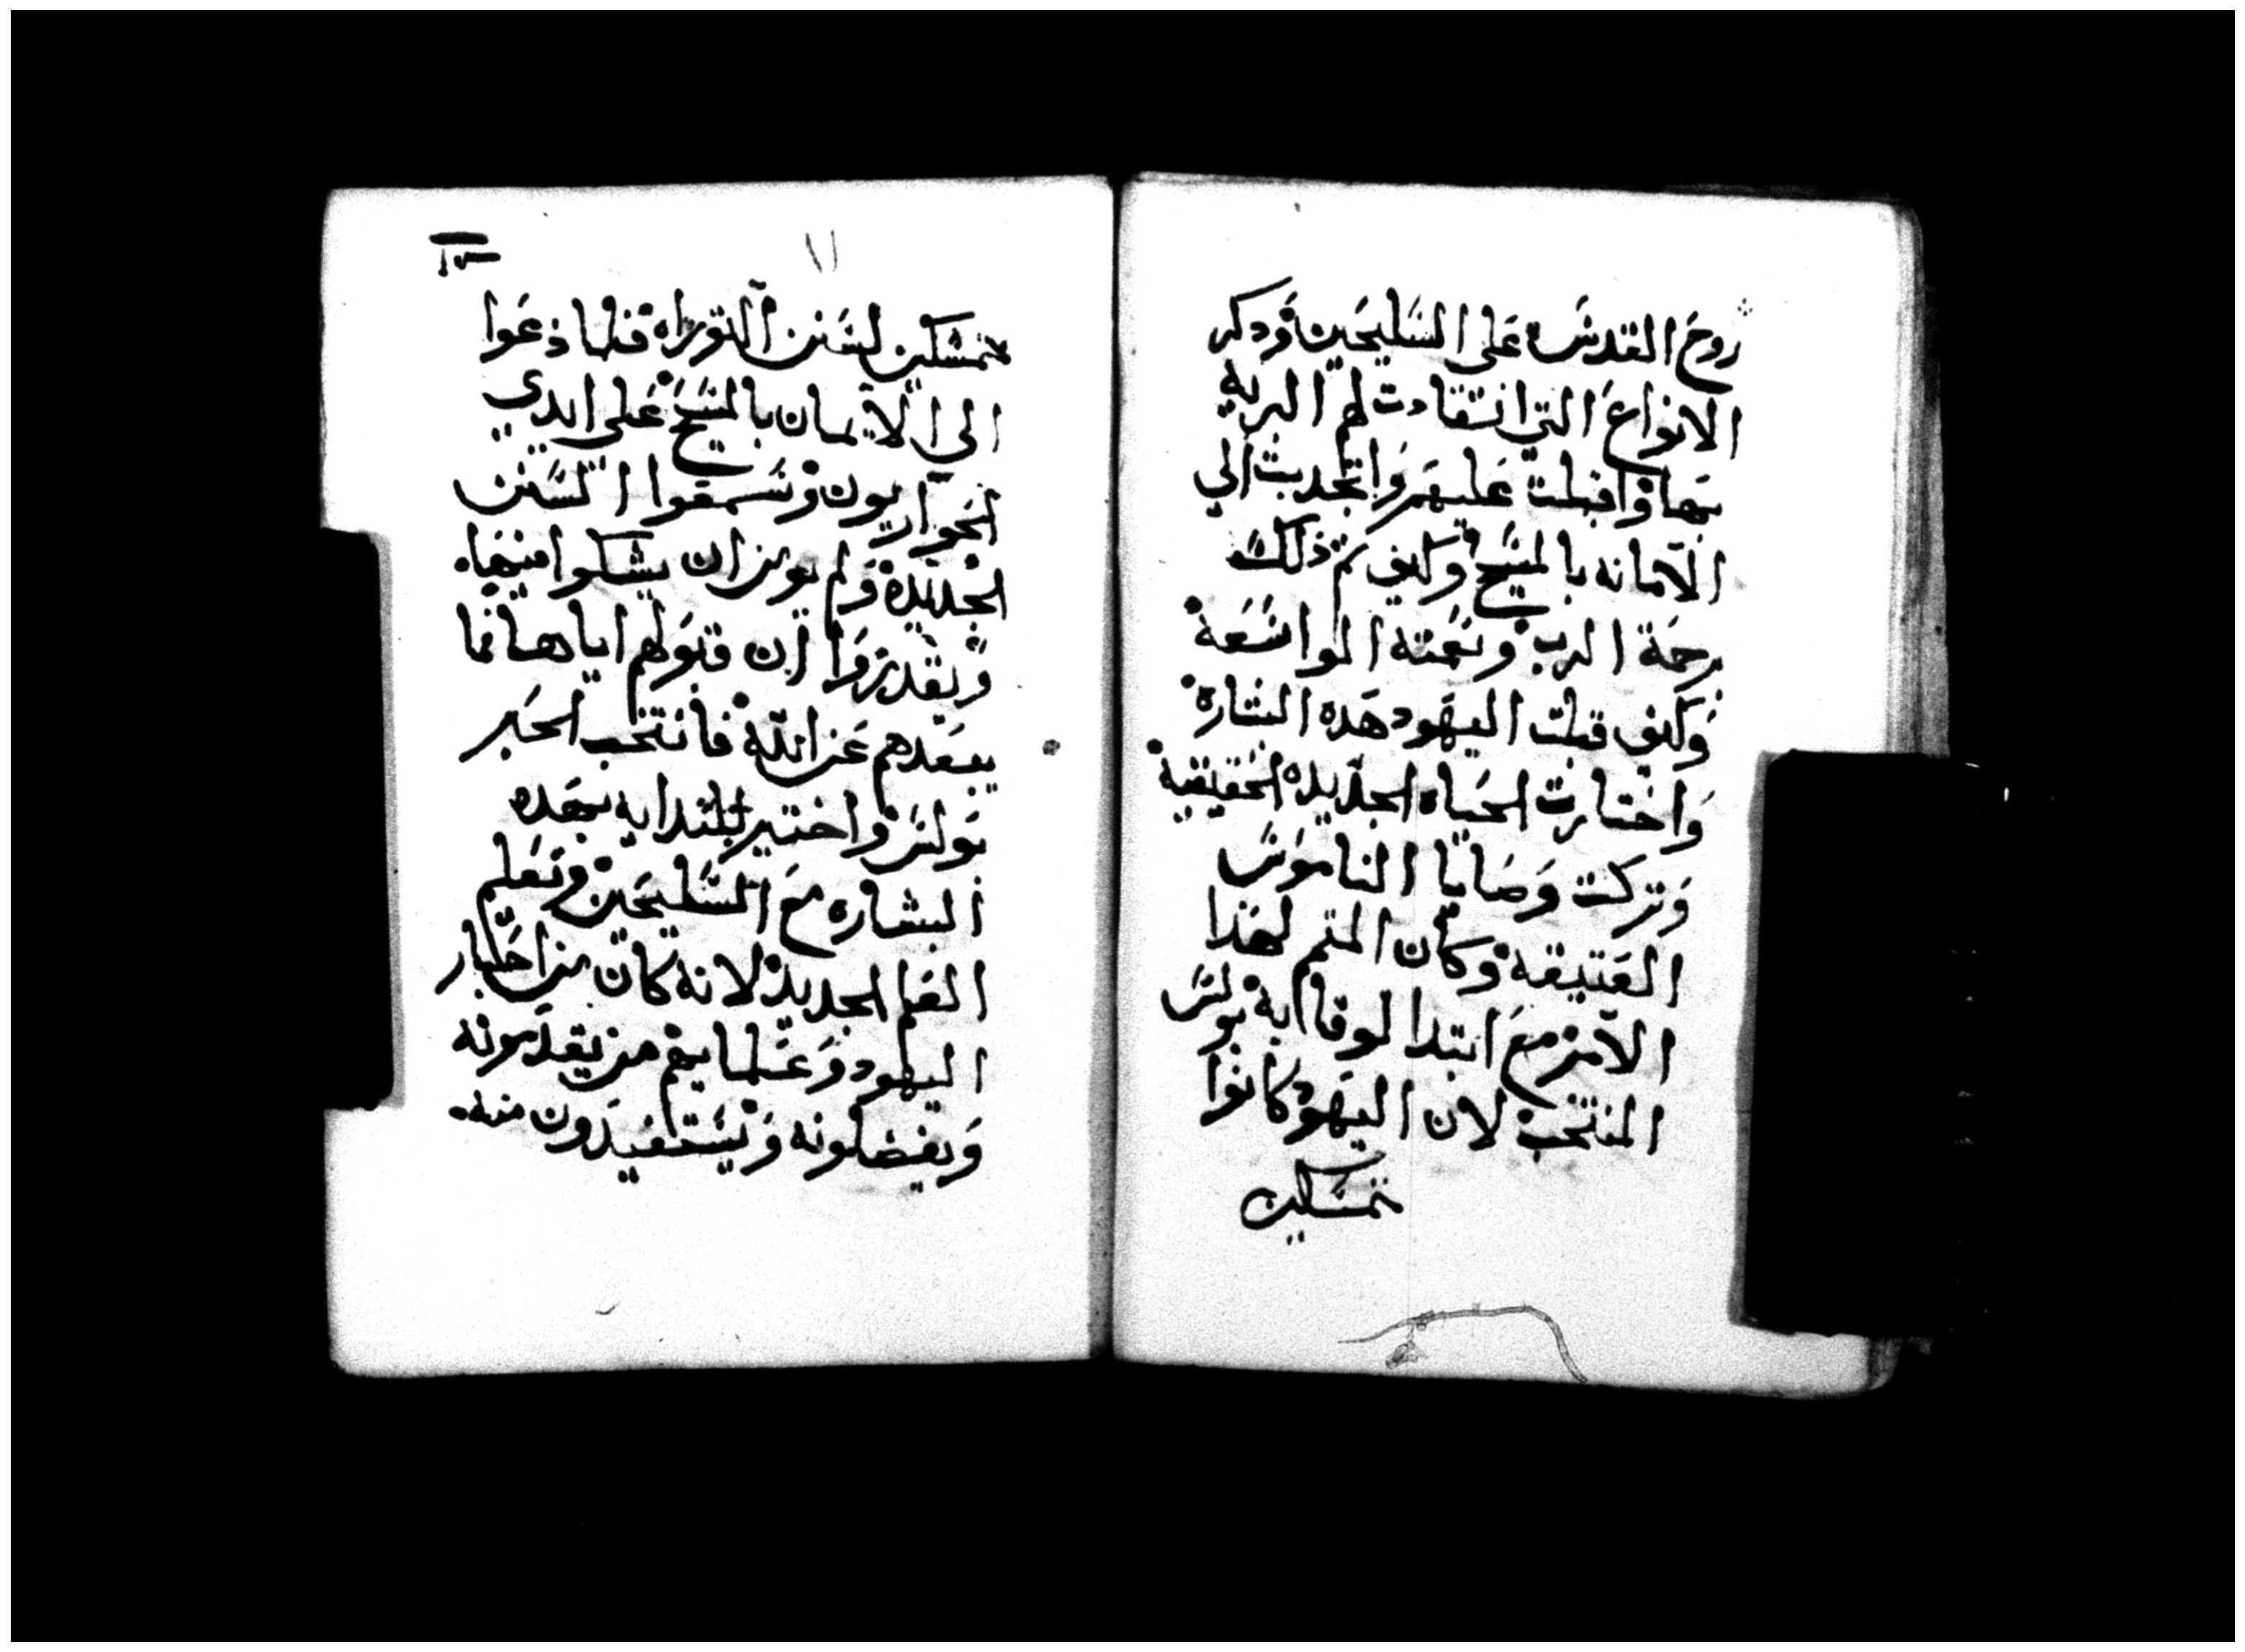 روح القدس على السليحين ودكر
الانواع التي انقادت لهم البريه
بها واقبلت عليهم وانجدبت الي
الامانه بالمسيح وكيف تم ذلك
برحمة الرب ونعمته الواسعة
وكيف قبلت اليهود هده البشاره
واختارت الحياه الجديده الحقيقية
وتركت وصايا الناموس
العتيقة وكان المتم لهذا
الامر مع ابتدا لوقا ابه بولس
المنتخب لان اليهود كانوا
متمسكين
١١
متمسكين لسنن التوراه فلما دعوا
الى الايمان بالمسيح على ايدي
الحواريون وسمعوا السنن
الجديدة ولم يوثر ان يشكوا فيها
ويقدروا ان قبولهم اياها مما
يبعدهم عن الله فانتخب الحبر
بولس واختير للندا به بهده
البشاره مع السليحين وتعليم
العلم الجديد لانه كان من احبار
اليهود وعلمايهم من يقدمونه
ويفضلونه ويستفيدون منه